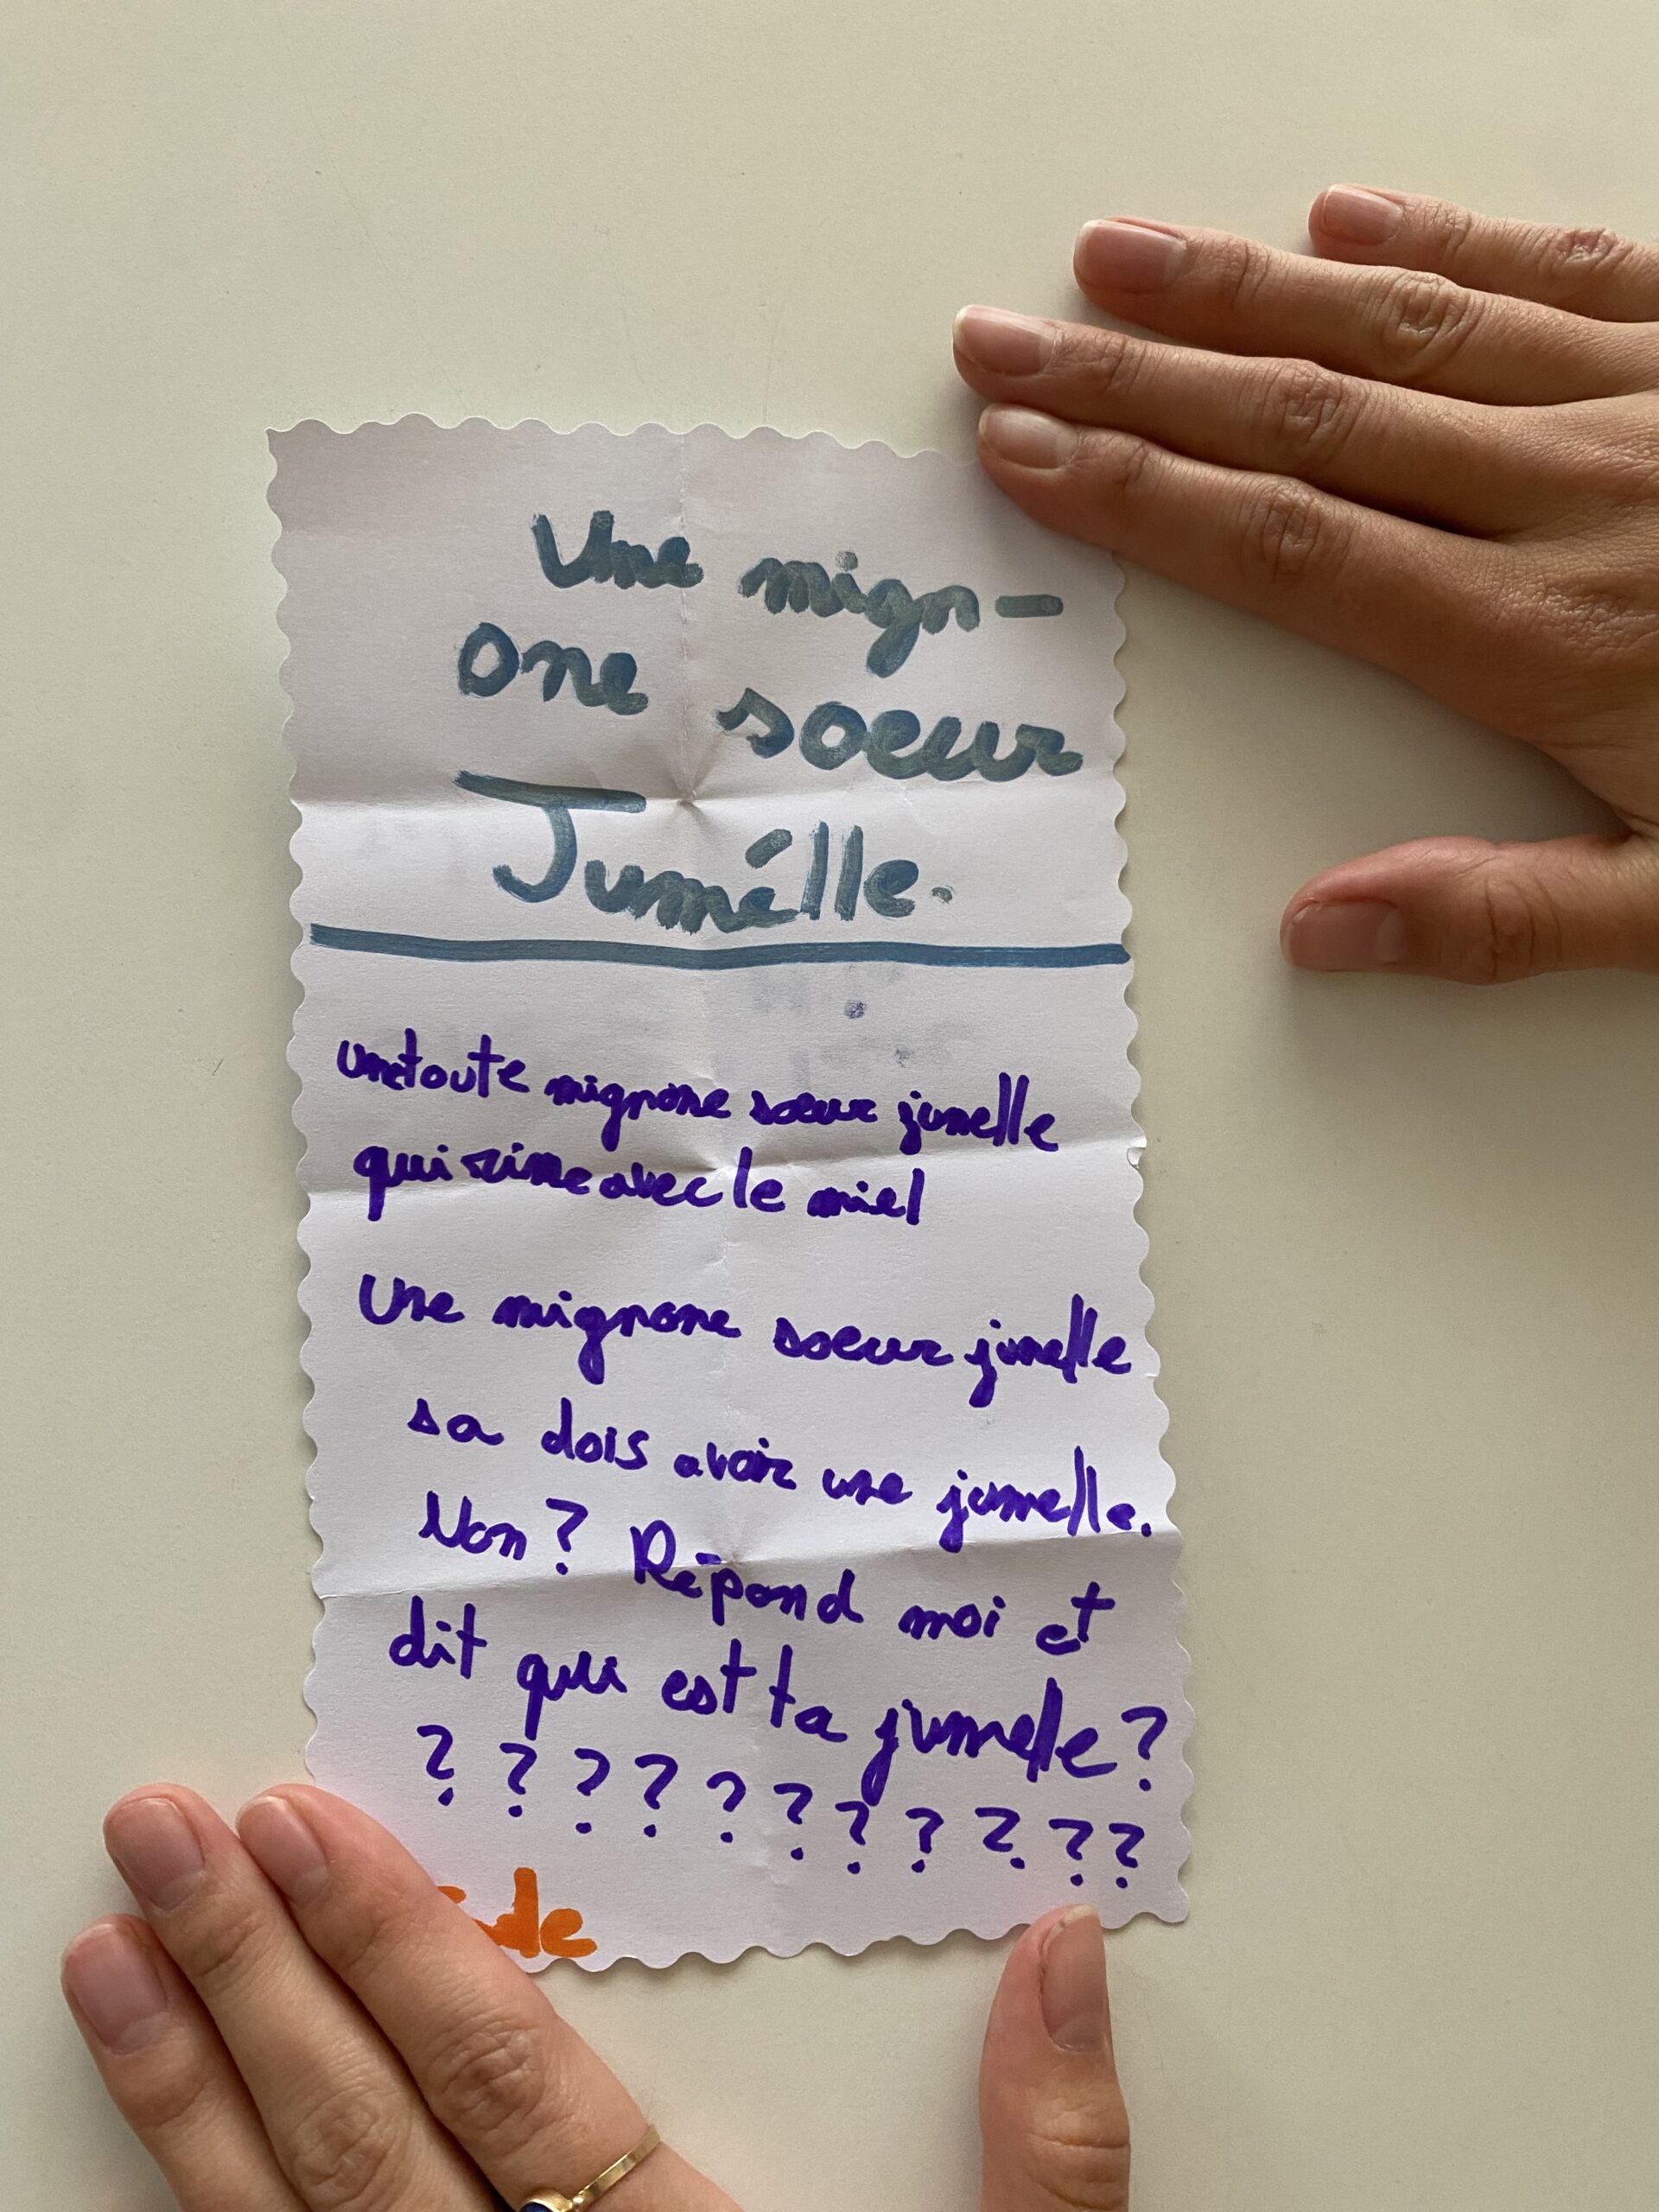 Une mign-
one soeur
Jumélle.
unetoute mignone soeur jumelle
qui rime avec le miel
Une mignone soeur jumelle
sa dois avoir une jumelle.
Non? Répond moi et
dit qui est ta jumelle?
? ? ? ? ? ? ? ? ? ? ?
de